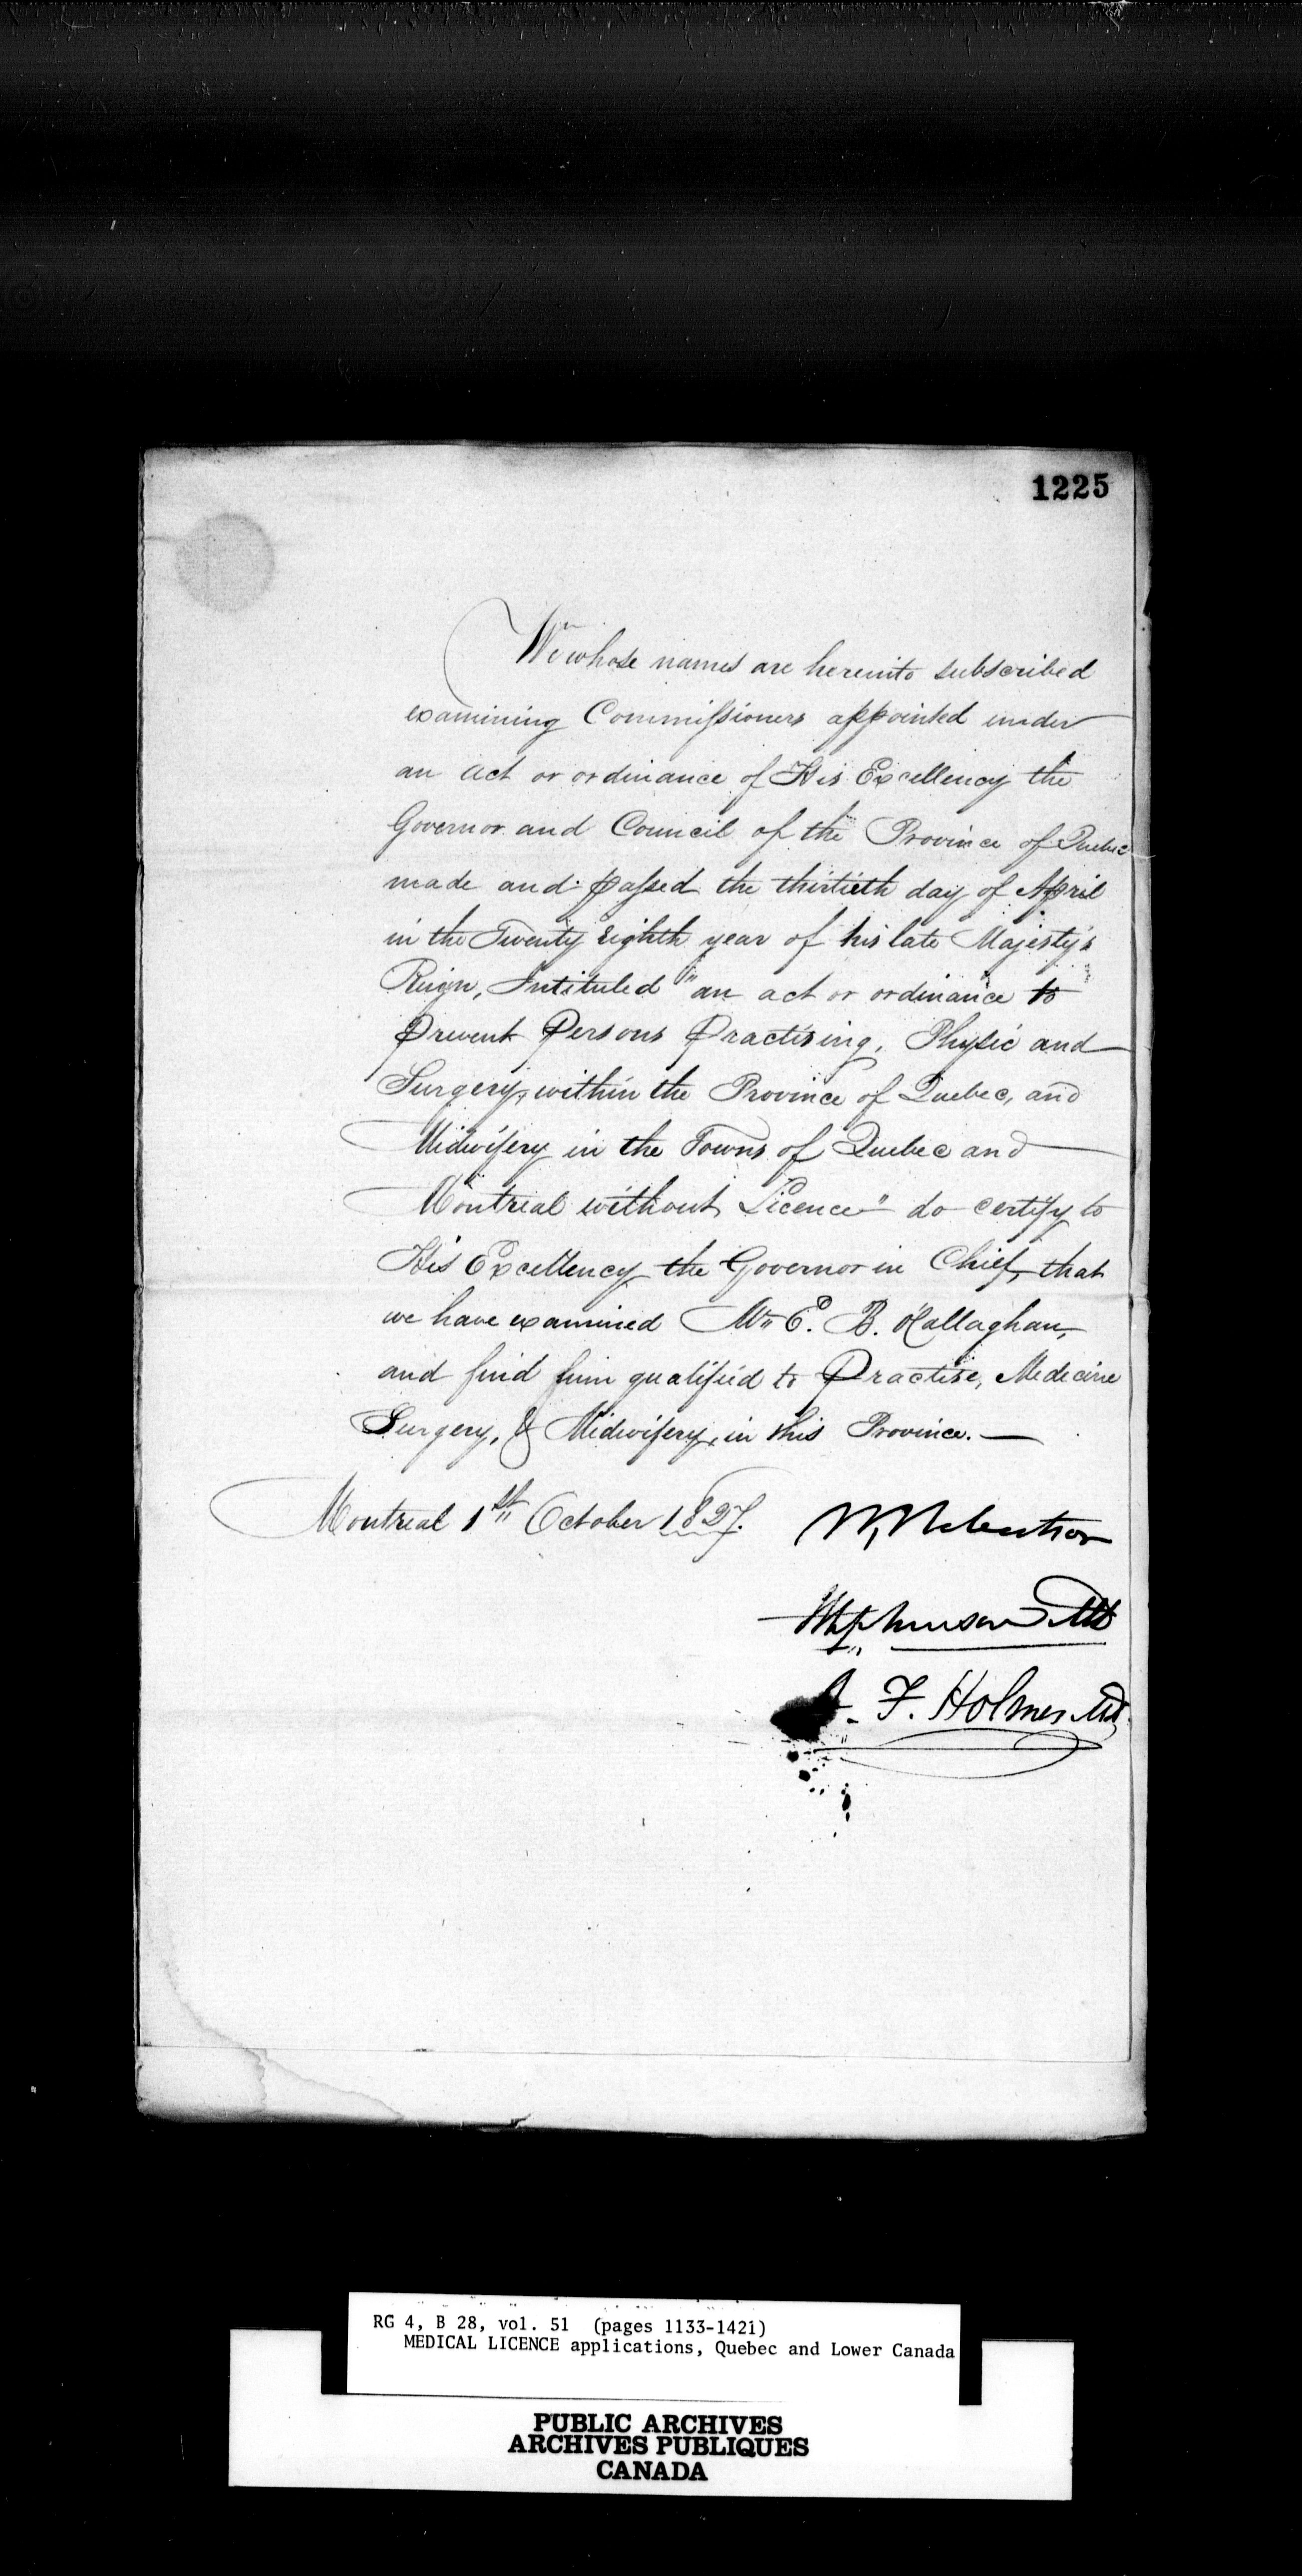 1225
We whose names are hereunto subscribed
examining Commissioners appointed under
an act or ordinance of His Excellency the
Governor and Council of the Province of Quebec
made and passed the thirtieth day of April
in the Twenty eighth year of his late Majesty's
Reign, Intituled "an act or ordinance to
Prevent Persons Practising, Physic and
Surgery, within the Province of Quebec, and
Midwifery in the Towns of Quebec and
Montreal without Licence" do certify to
His Excellency the Governor in Chief, that
we have examined Mr. E. B. O'Callaghan,
and find him qualified to Practise, Medicine
Surgery, & Midwifery, in this Province. —
Montreal 1st October 1827.
W Robertson
Stephenson MD
A. F. Holmes MD.
RG 4, B 28, vol. 51 (pages 1133-1421)
MEDICAL LICENCE applications, Quebec and Lower Canada
PUBLIC ARCHIVES
ARCHIVES PUBLIQUES
CANADA